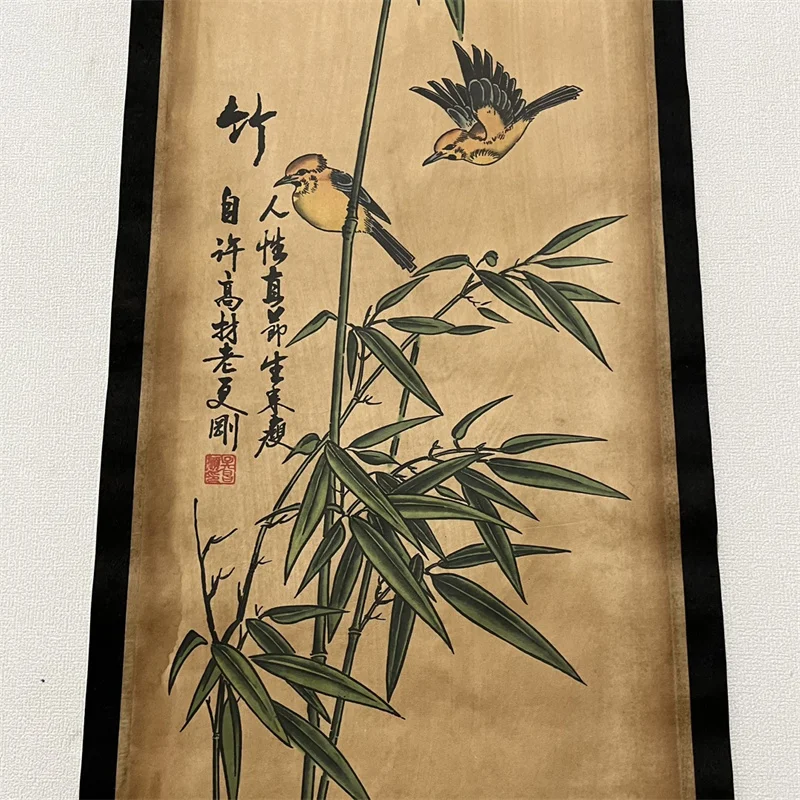 竹
人性直節生来瘦
自许高材老更剛